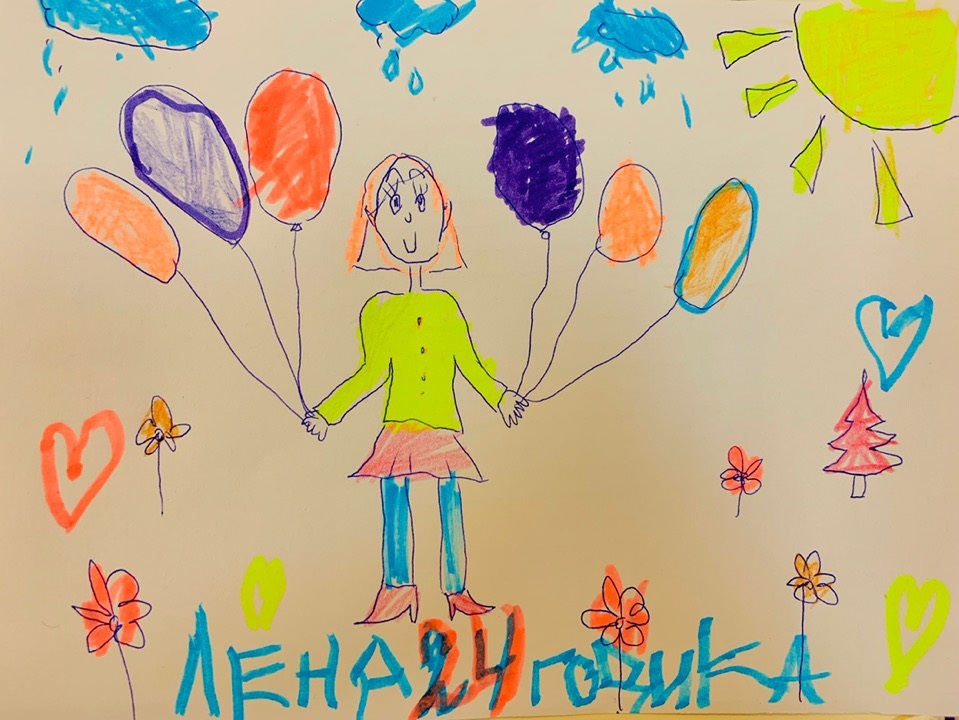 ЛЕНА 24 годика